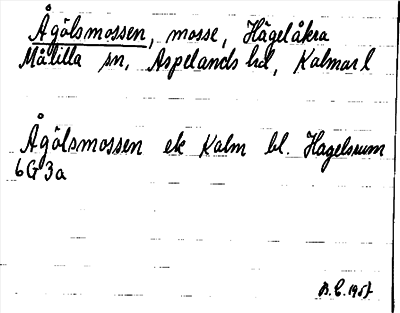 Ågölsmossen, mosse, Hägelåkra
Målilla sn, Aspelands hd, Kalmar l
Ågölsmossen ek Kalm bl. Hagelsrum
6G 3a
B.E. 1957